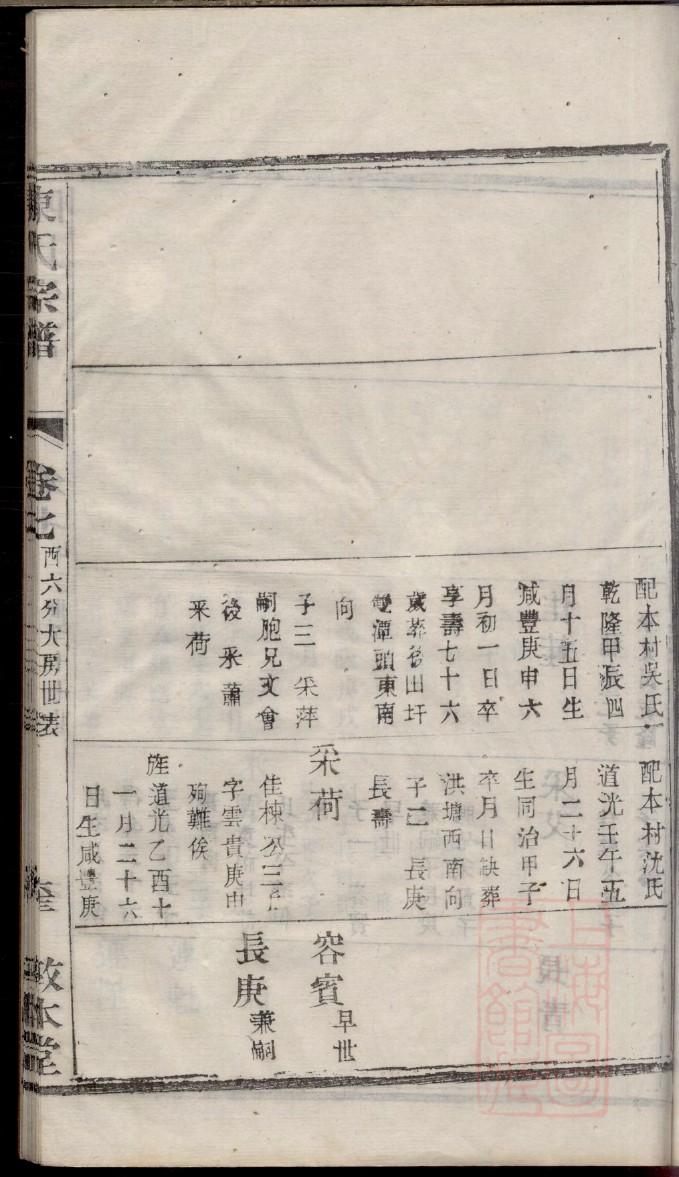 配本村吳氏
乾隆甲辰四
月十五日生
咸豐庚申六
月初一日卒
享壽七十六
歲葬後田圩
雙潭頭東南
向
子三 采萍
嗣胞兄文會
後 采蕭
采荷
配本村沈氏
道光壬午五
月二十六日
生同治甲子
卒月日缺葬
洪塘西南向
子二 長庚
長壽
采荷
佳棟公三子
字雲貴庚申
殉難俟
旌道光乙酉十
一月二十六
日生咸豐庚
容賓 早世
長庚 兼嗣
氏宗譜
卷七
西六分大房世表
敦本堂
上海圖書館藏